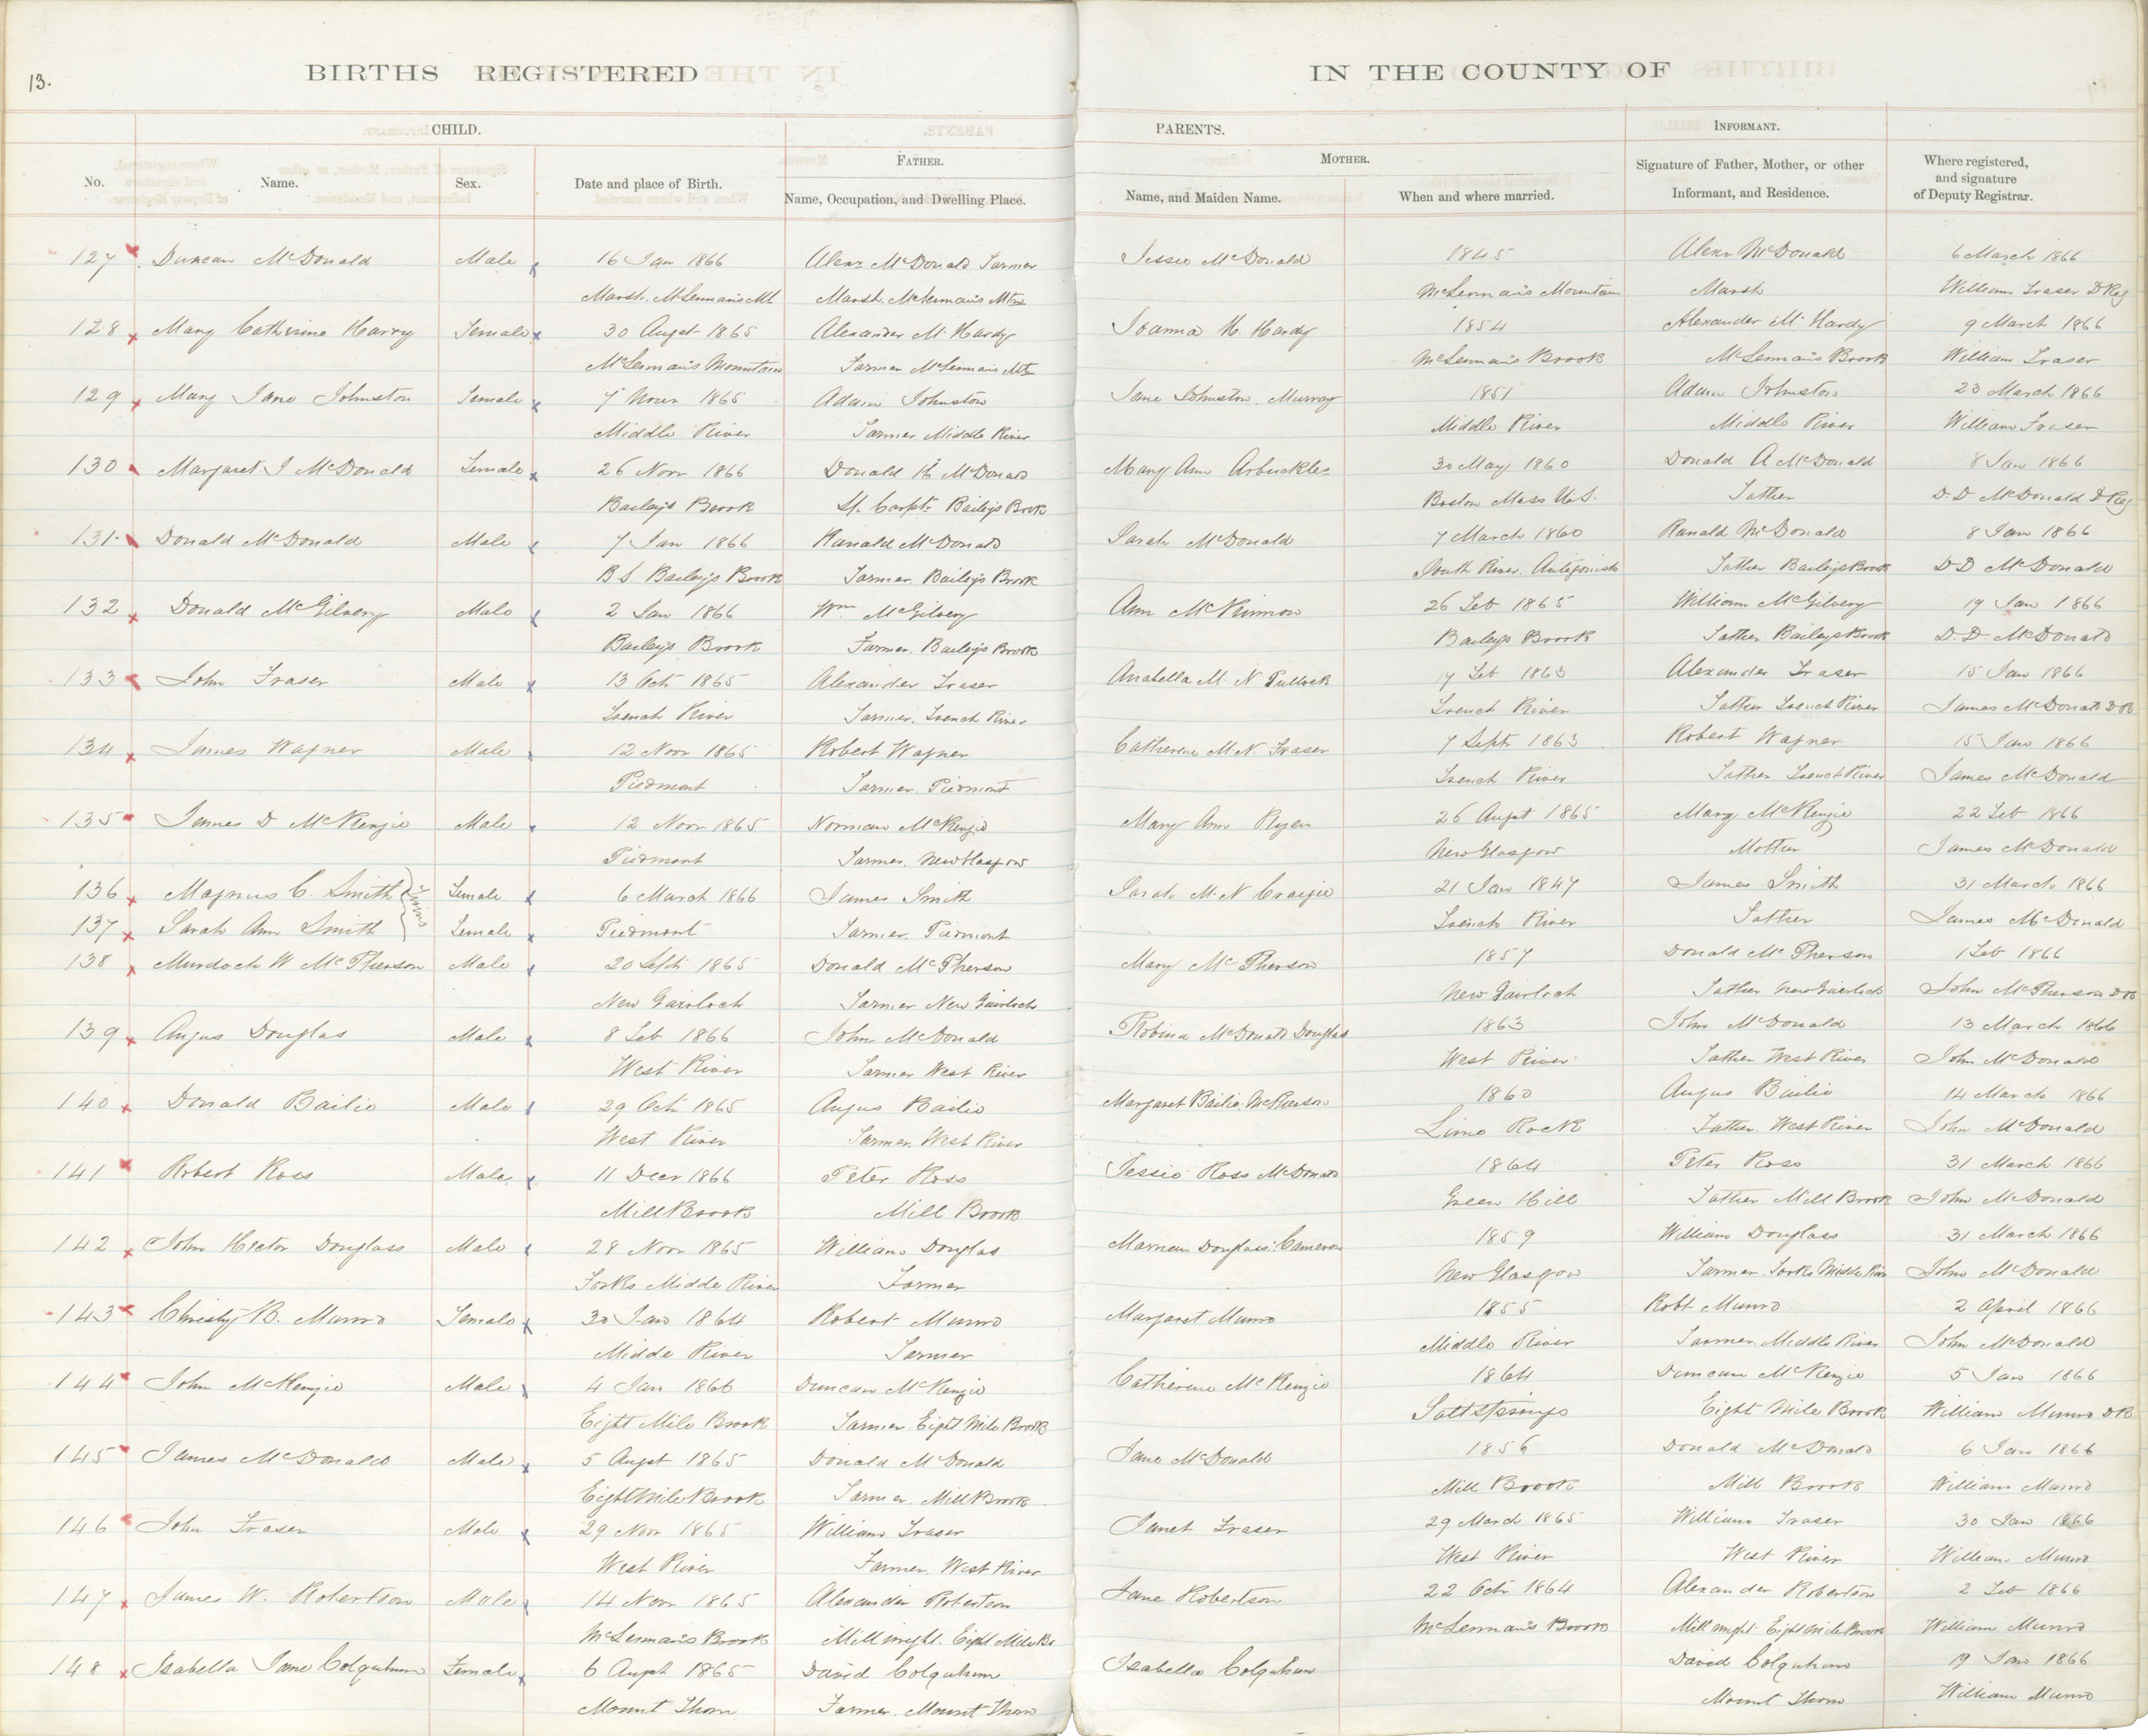 13.
BIRTHS REGISTERED IN THE COUNTY OF
CHILD. PARENTS. INFORMANT.
FATHER. MOTHER.
No. Name. Sex. Date and place of Birth. Name, Occupation, and Dwelling Place. Name, and Maiden Name. When and where married. Signature of Father, Mother, or other Informant, and Residence. Where registered, and signature of Deputy Registrar.
127 Duncan McDonald Male 16 Jan 1866 Alexr McDonald Farmer Jessie McDonald 1845 Alexr McDonald 6 March 1866
Marsh. McLennan's Mt Marsh. McLennan's Mtn McLennan's Mountain Marsh William Fraser D Reg
128 Mary Catherine Harry Female 30 Augst 1865 Alexander M. Hardy Joanna H. Hardy 1854 Alexander M. Hardy 9 March 1866
McLennan's Mountain Farmer McLennan's Mt McLennan's Brook McLennan's Brook William Fraser
129 Mary Jane Johnston Female 7 Novr 1865 Adam Johnston Jane Johnston Murray 1851 Adam Johnston 23 March 1866
Middle River Farmer Middle River Middle River Middle River William Fraser
130 Margaret J McDonald Female 26 Novr 1866 Donald McDonald Mary Ann Arbuckles 30 May 1860 Donald A McDonald 8 Jan 1866
Baileys Brook Carptr Baileys Brook Boston Mass U.S. Father D. D McDonald D Reg
131 Donald McDonald Male 7 Jan 1866 Ranald McDonald Sarah McDonald 7 March 1860 Ranald McDonald 8 Jan 1866
B S Baileys Brook Farmer. Baileys Brook South River. Antigonish Father Baileys Brook D D McDonald
132 Donald McGilvery Male 2 Jan 1866 Wm McGilvery Ann McKinnon 26 Feb 1865 William McGilvery 19 Jan 1866
Baileys Brook Farmer. Baileys Brook Baileys Brook Father Baileys Brook D. D McDonald
133 John Fraser Male 13 Oct 1865 Alexander Fraser Anabella M. N Pullock 17 Feb 1863 Alexander Fraser 15 Jan 1866
French River Farmer. French River French River Father French River James McDonald D R
134 James Wagner Male 12 Novr 1865 Robert Wagner Catherine M. N. Fraser 7 Septr 1863 Robert Wagner 15 Jan 1866
Piedmont Farmer. Piedmont French River Father French River James McDonald
135 James D McKenzie Male 12 Novr 1865 Norman McKenzie Mary Ann Ryen 26 Augst 1865 Mary McKenzie 22 Feb 1866
Piedmont Farmer. New Glasgow New Glasgow Mother James McDonald
136 Magnus C. Smith Twins Female 6 March 1866 James Smith Sarah M. N Craigie 21 Jan 1847 James Smith 31 March 1866
137 Sarah Ann Smith Female Piedmont Farmer. Piedmont French River Father James McDonald
138 Murdoch W McPherson Male 20 Septr 1865 Donald McPherson Mary McPherson 1857 Donald McPherson 1 Feb 1866
New Gairloch Farmer New Gairloch New Gairloch Father New Gairloch John McPherson D R
139 Angus Douglas Male 8 Feb 1866 John McDonald Robina McDonald Douglas 1863 John McDonald 13 March 1866
West River Farmer West River West River Father West River John McDonald
140 Donald Bailie Male 29 Oct 1865 Angus Bailie Margaret Bailie. McPherson 1860 Angus Bailie 14 March 1866
West River Farmer. West River Lime Rock Father. West River John McDonald
141 Robert Ross Male 11 Decr 1866 Peter Ross Jessie Ross McDonald 1864 Peter Ross 31 March 1866
Mill Brook Mill Brook Green Hill Father Mill Brook John McDonald
142 John Hector Douglass Male 28 Novr 1865 William Douglas Douglass. Cameron 1859 William Douglass 31 March 1866
Forks Midde River Farmer New Glasgow Farmer. Forks Middle River John McDonald
143 Christy B. Munro Female 30 Jan 1864 Robert Munro Margaret Munro 1855 Robt Munro 2 April 1866
Midde River Farmer Middle River Farmer. Middle River John McDonald
144 John McKenzie Male 4 Jan 1866 Duncan McKenzie Catherine McKenzie 1864 Duncan McKenzie 5 Jan 1866
Eight Mile Brook Farmer Eight Mile Brook Salt Springs Eight Mile Brook William Munro D R
145 James McDonald Male 5 Augst 1865 Donald McDonald Jane McDonald 1856 Donald McDonald 6 Jan 1866
Eight Mile Brook Farmer. Mill Brook Mill Brook Mill Brook William Munro
146 John Fraser Male 29 Nov 1865 William Fraser Janet Fraser 29 March 1865 William Fraser 30 Jan 1866
West River Farmer. West River West River West River William Munro
147 James W. Robertson Male 14 Novr 1865 Alexander Robertson Jane Robertson 22 Oct 1864 Alexander Robertson 2 Feb 1866
McLennan's Brook Millwright. Eight Mile Br McLennan's Brook Millwright. Eight Mile Brook William Munro
148 Isabella Jane Colquhoun Female 6 Augst 1865 David Colquhoun Isabella Colquhoun David Colquhoun 19 Jan 1866
Mount Thom Farmer. Mount Thom Mount Thom William Munro